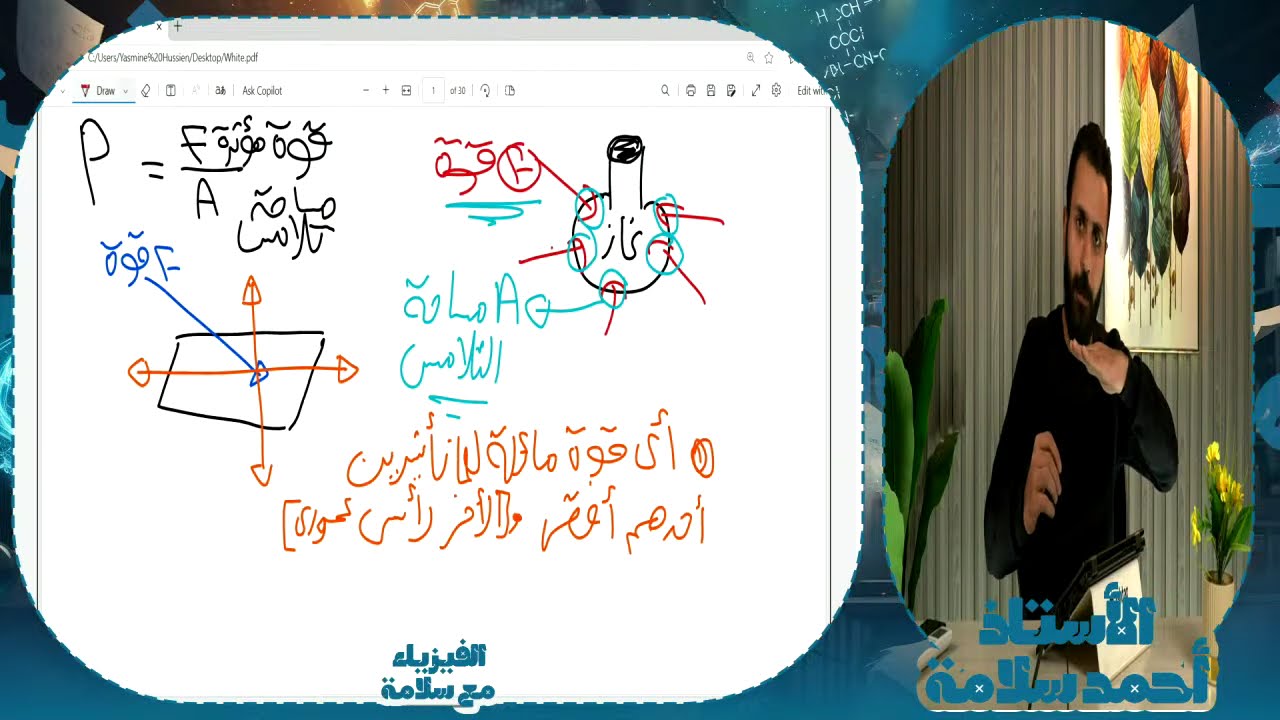 C:/Users/Yasmine%20Hussien/Desktop/White.pdf
Draw
Ask Copilot
1 of 30
Edit wit
P = قوة مؤثرة F
A مساحة
تلامس
F قوة
F قوة
غاز
A مساحة
التلامس
① أى قوة مائلة ليها تأثيرين
أحدهم أفقى و[الأخر رأسى عمودى]
الفيزياء
مع سلامة
الأستاذ
أحمد سلامة
H
CH
CCCl
CN